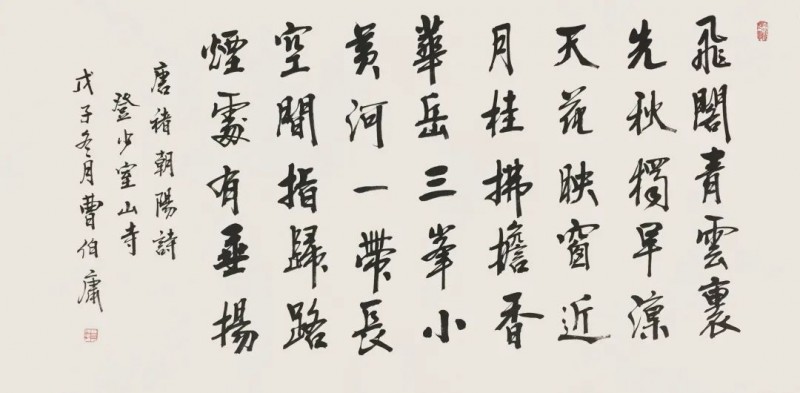 飛閣青雲裏
先秋獨早涼
天花映窗近
月桂拂檐香
華岳三峯小
黃河一帶長
空間指歸路
煙處有垂楊
唐褚朝陽詩
登少室山寺
戊子冬月曹伯庸